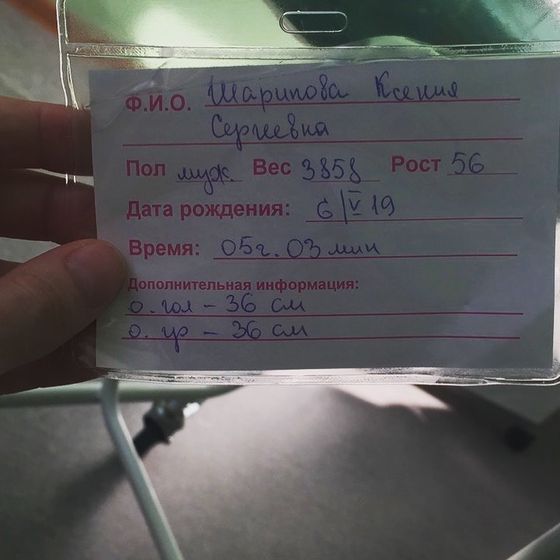 Ф.И.О. Шарипова Ксения
Сергеевна
Пол муж. Вес 3858 Рост 56
Дата рождения: 6/V 19
Время: 05г. 03 мин
Дополнительная информация:
о. гол - 36 см
о. гр - 36 см